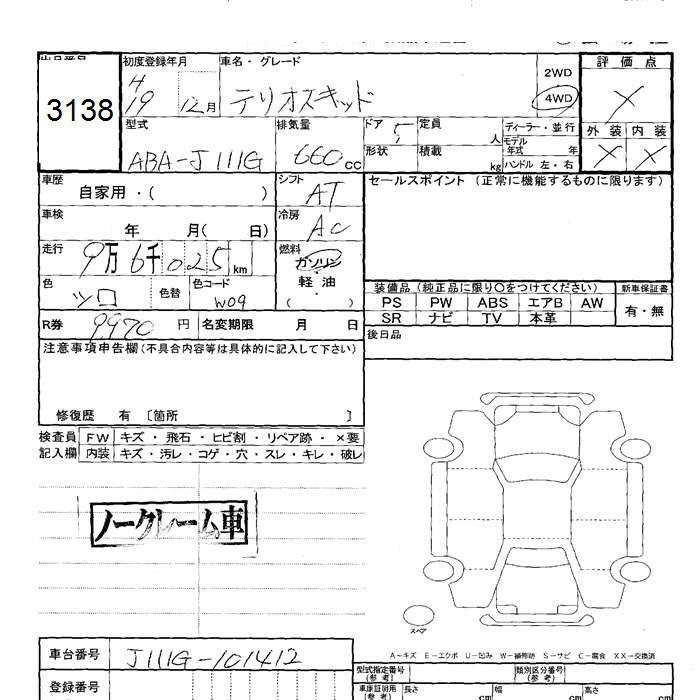 出品番号
3138
初度登録年月
H
19 12月
車名・グレード
テリオスキッド
2WD
4WD
評価点
×
型式
ABA-J111G
排気量
660cc
ドア 5
定員
人
ディーラー・並行
モデル
年式 年
形状
積載
kg
ハンドル 左・右
外装 内装
× ×
車歴
自家用・( )
シフト
AT
セールスポイント (正常に機能するものに限ります)
車検
年 月( 日)
冷房
AC
走行
9万6千025km
燃料
ガソリン
軽油
( )
色
シロ
色替
色コード
W09
装備品 (純正品に限り○をつけてください)
新車保証書
PS PW ABS エアB AW
SR ナビ TV 本革
有・無
R券 9,970 円 名変期限 月 日
後日品
注意事項申告欄(不具合内容等は具体的に記入して下さい)
修復歴 有 〔箇所 〕
検査員 FW キズ・飛石・ヒビ割・リペア跡・×要
記入欄 内装 キズ・汚レ・コゲ・穴・スレ・キレ・破レ
ノークレーム車
スペア
A-キズ E-エクボ U-凹み W-補修跡 S-サビ C-腐食 XX-交換済
車台番号 J111G-101412
登録番号
型式指定番号
(参考)
類別区分番号
(参考)
車庫証明用
(参考)
長さ cm 幅 cm 高さ cm